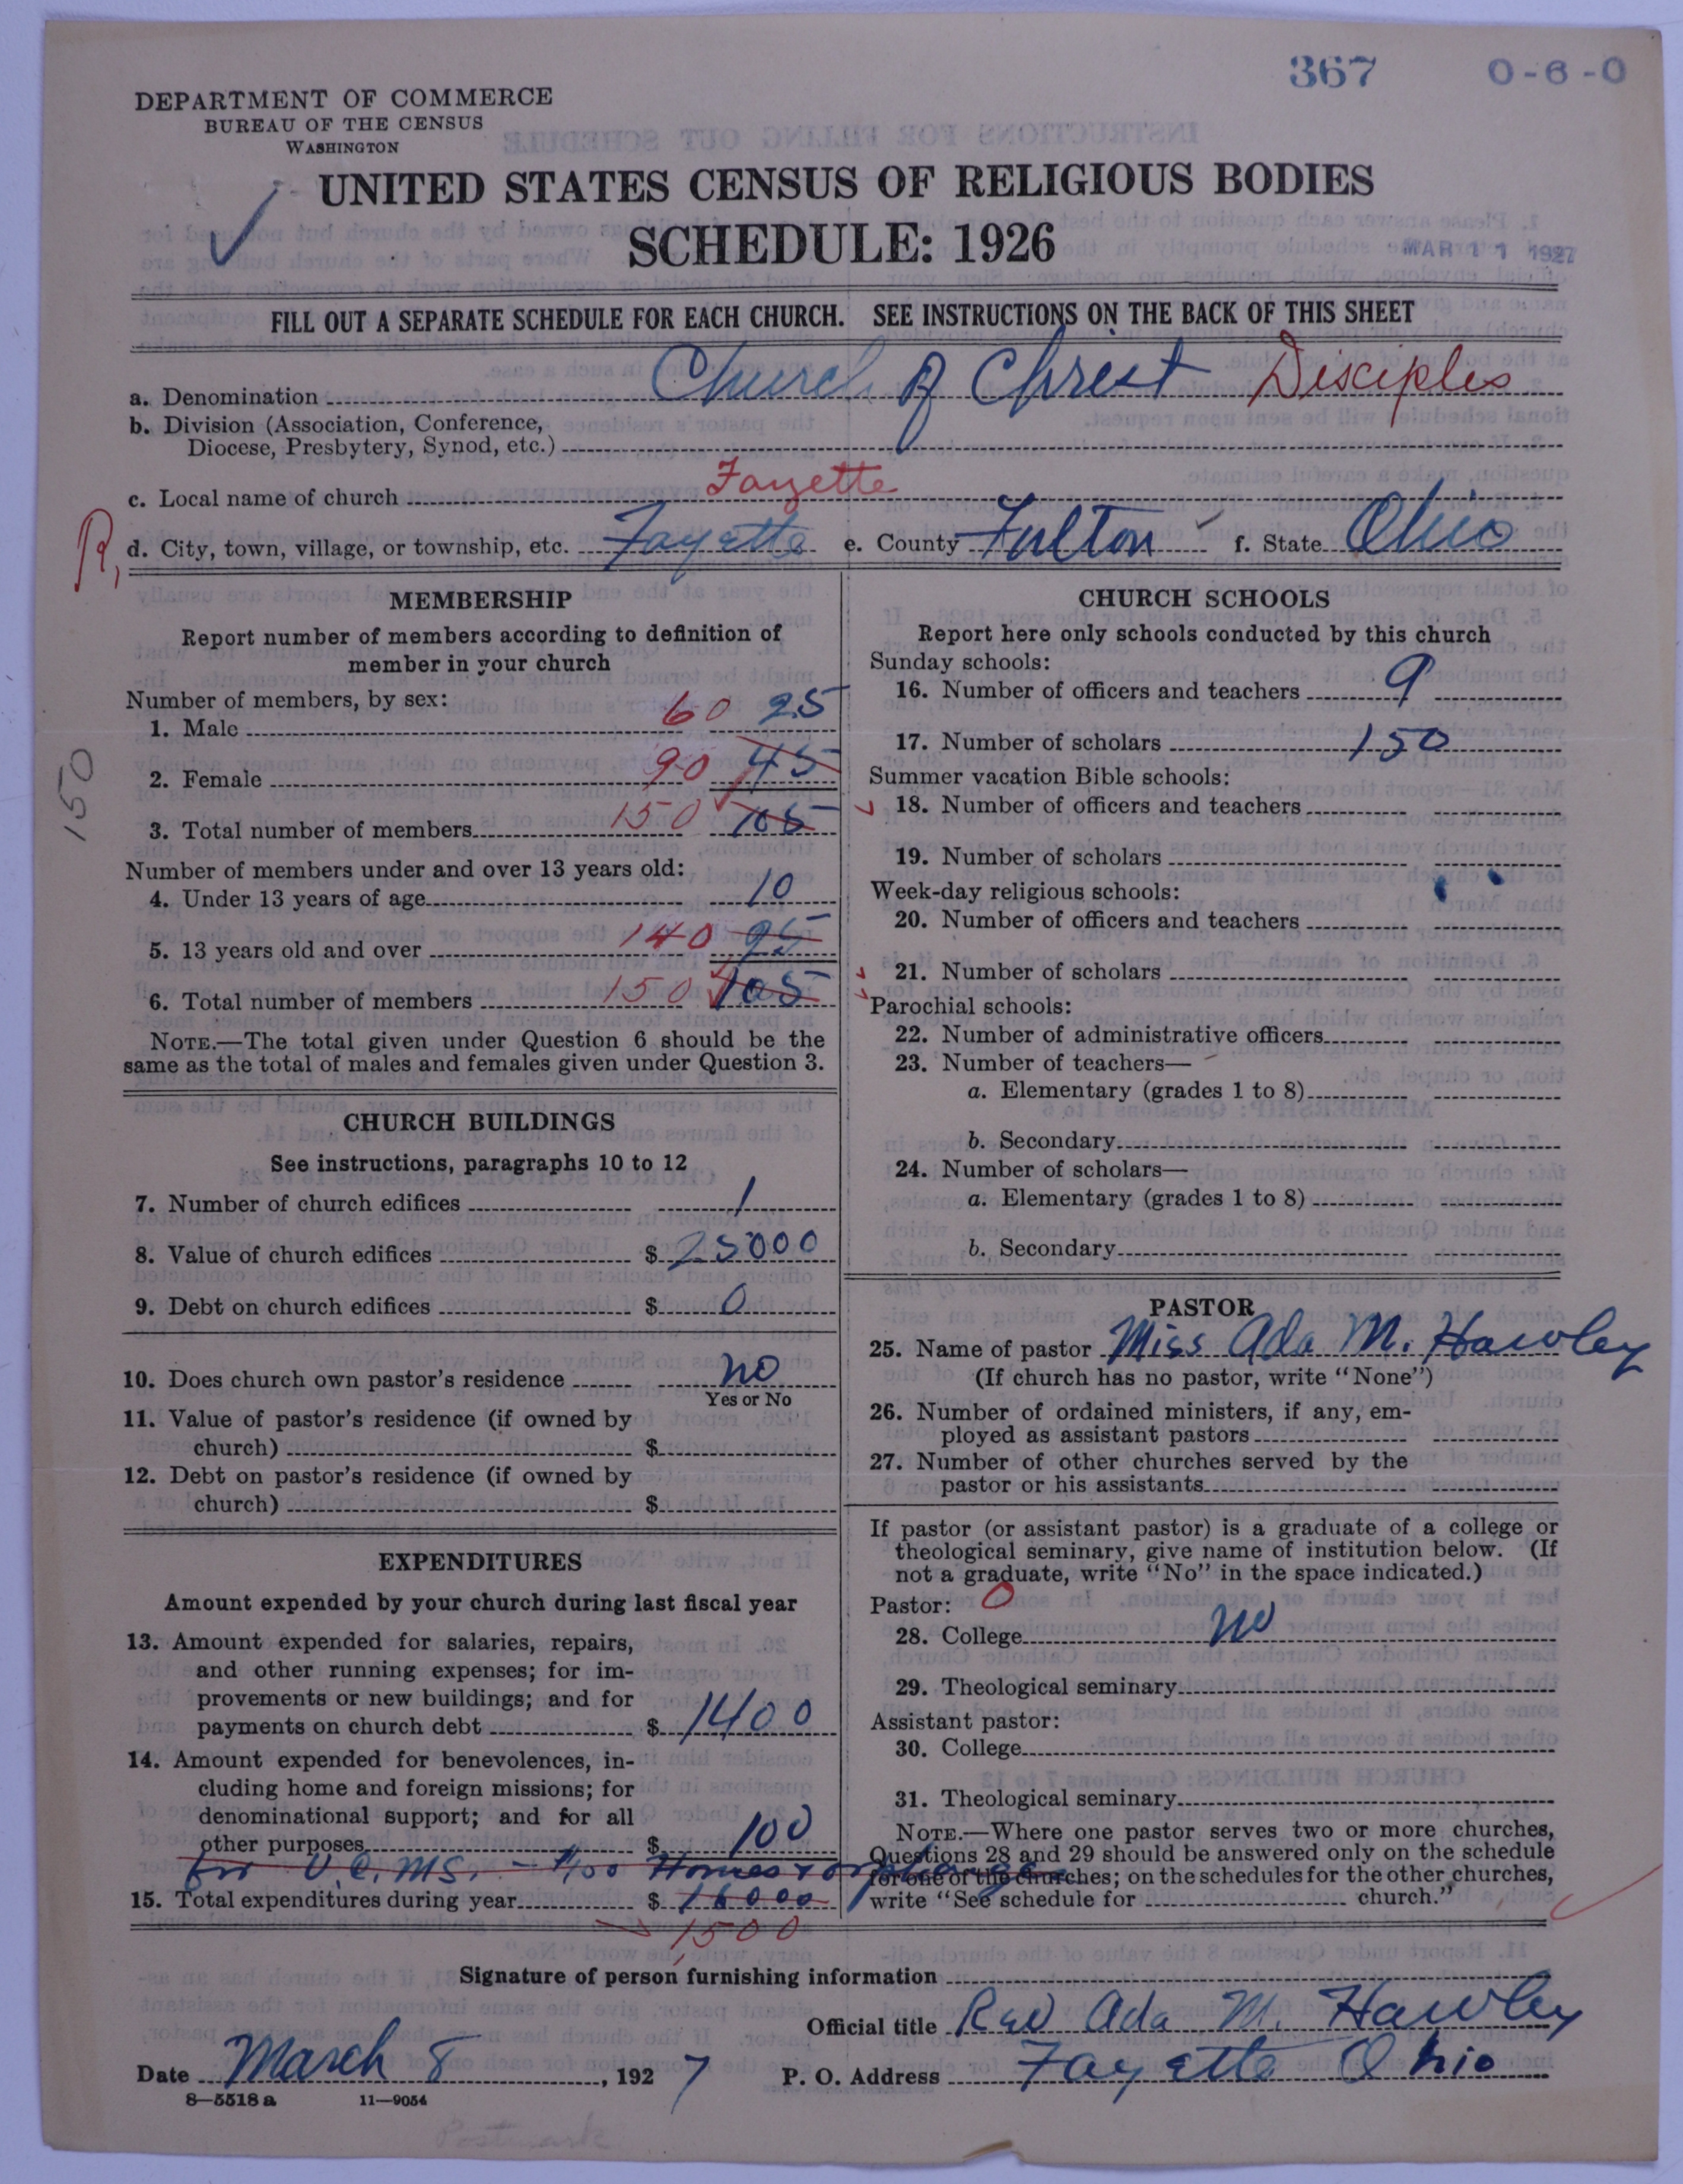 367 0-6-0
DEPARTMENT OF COMMERCE
BUREAU OF THE CENSUS
WASHINGTON
UNITED STATES CENSUS OF RELIGIOUS BODIES
SCHEDULE: 1926
MAR 11 1927
FILL OUT A SEPARATE SCHEDULE FOR EACH CHURCH. SEE INSTRUCTIONS ON THE BACK OF THIS SHEET
a. Denomination Church of Christ Disciples
b. Division (Association, Conference,
Diocese, Presbytery, Synod, etc.)
c. Local name of church Fayette
R, d. City, town, village, or township, etc. Fayette e. County Fulton f. State Ohio
MEMBERSHIP
Report number of members according to definition of
member in your church
Number of members, by sex:
1. Male 60 25
2. Female 90 45
150
3. Total number of members 150 105
Number of members under and over 13 years old:
4. Under 13 years of age 10
5. 13 years old and over 140 95
6. Total number of members 150 105
NOTE.—The total given under Question 6 should be the
same as the total of males and females given under Question 3.
CHURCH BUILDINGS
See instructions, paragraphs 10 to 12
7. Number of church edifices 1
8. Value of church edifices $ 25000
9. Debt on church edifices $ 0
10. Does church own pastor's residence no
Yes or No
11. Value of pastor's residence (if owned by
church) $
12. Debt on pastor's residence (if owned by
church) $
EXPENDITURES
Amount expended by your church during last fiscal year
13. Amount expended for salaries, repairs,
and other running expenses; for im-
provements or new buildings; and for
payments on church debt $ 1400
14. Amount expended for benevolences, in-
cluding home and foreign missions; for
denominational support; and for all
other purposes $ 100
for U.C.M.S. - $100 Homes + orphanage
15. Total expenditures during year $ 16000
1500
CHURCH SCHOOLS
Report here only schools conducted by this church
Sunday schools:
16. Number of officers and teachers 9
17. Number of scholars 150
Summer vacation Bible schools:
18. Number of officers and teachers
19. Number of scholars
Week-day religious schools:
20. Number of officers and teachers
21. Number of scholars
Parochial schools:
22. Number of administrative officers
23. Number of teachers—
a. Elementary (grades 1 to 8)
b. Secondary
24. Number of scholars—
a. Elementary (grades 1 to 8)
b. Secondary
PASTOR
25. Name of pastor Miss Ada M. Hawley
(If church has no pastor, write "None")
26. Number of ordained ministers, if any, em-
ployed as assistant pastors
27. Number of other churches served by the
pastor or his assistants
If pastor (or assistant pastor) is a graduate of a college or
theological seminary, give name of institution below. (If
not a graduate, write "No" in the space indicated.)
Pastor: 0
28. College no
29. Theological seminary
Assistant pastor:
30. College
31. Theological seminary
NOTE.—Where one pastor serves two or more churches,
Questions 28 and 29 should be answered only on the schedule
for one of the churches; on the schedules for the other churches,
write "See schedule for church."
Signature of person furnishing information
Official title Rev Ada M. Hawley
Date March 8, 1927 P. O. Address Fayette Ohio
8—5518 a 11—9054
Postmark